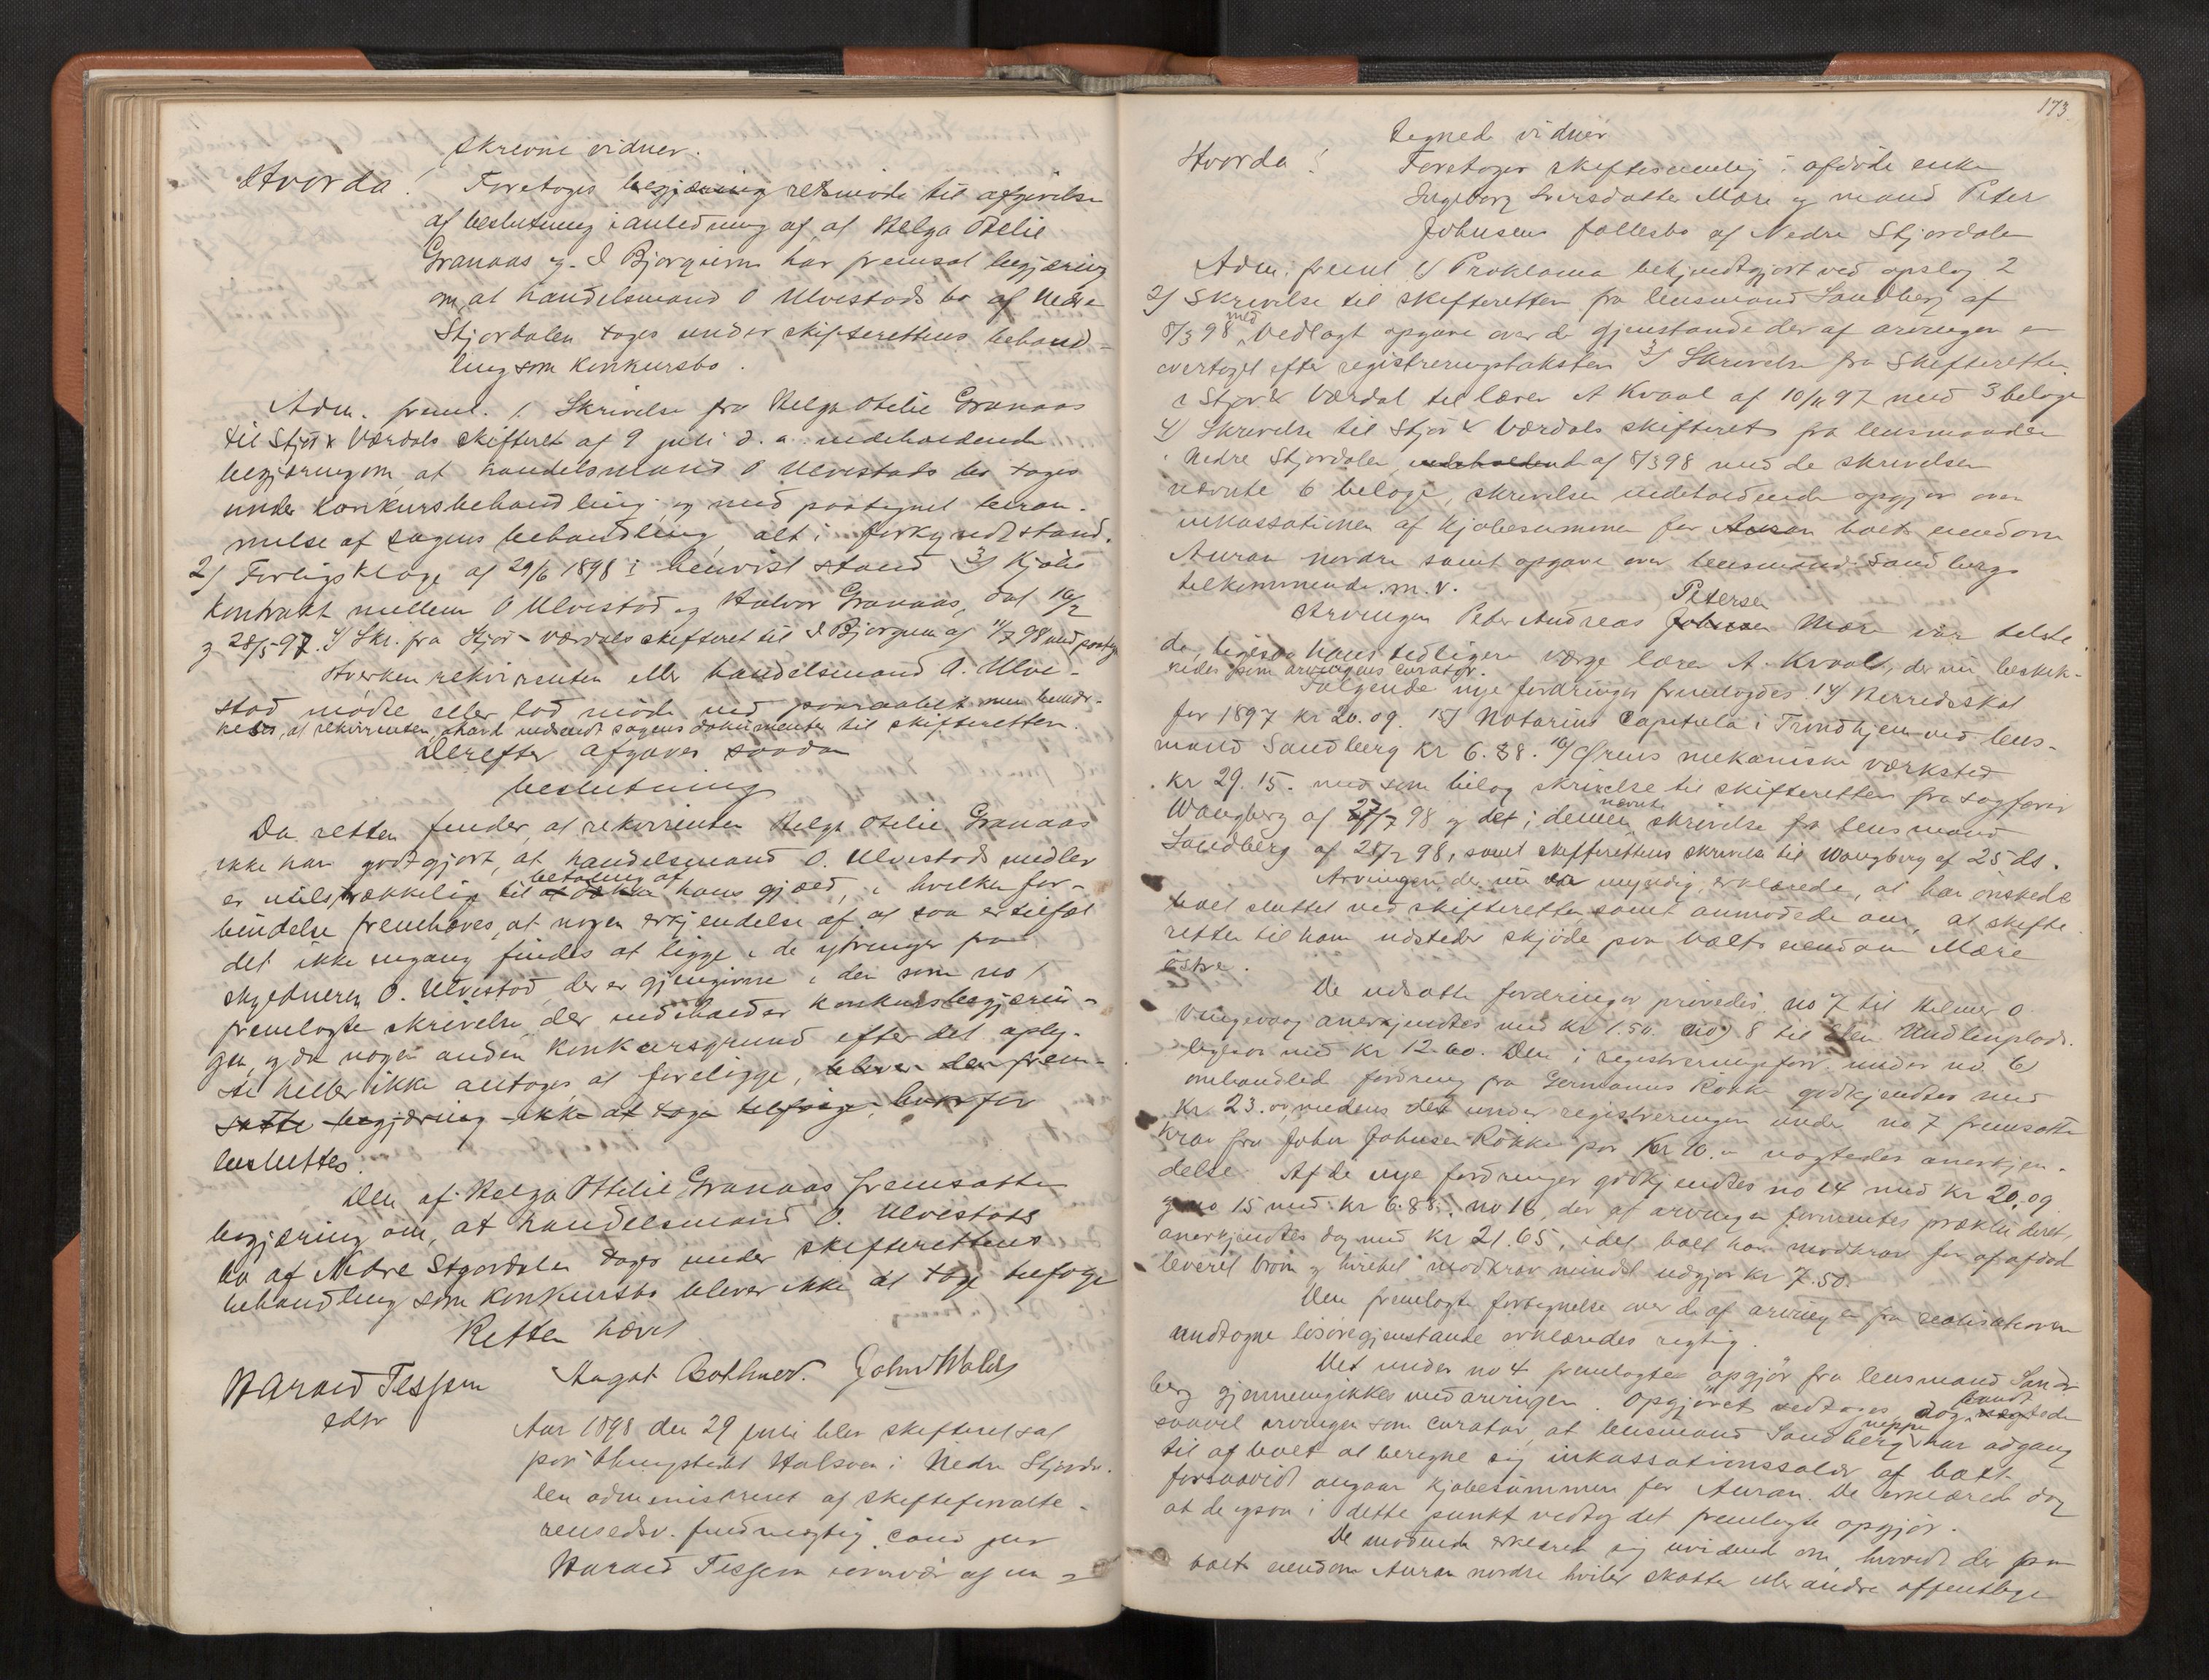 skrevne vidner.
Hvorda!
Foretoges begjæring retsmöde til afgivelse
af beslutning i anledning af, at Helga Otelie
Granaas og I Bjorgum har fremsat begjæring
om, at handelsmand O Ulvestads bo af Nedre
Stjordalen tages under skifterettens behand-
ling som konkursbo.
Adm. freml. 1. Skrivelse fra Helga Otelie Granaas
til Stjör & Værdals skifteret af 9 juli d. a. indeholdende
begjæring om, at handelsmand O Ulvestads bo tages
under konkursbehandling og med paategnet beram-
melse af sagens behandling, alt i forkyndt stand.
2) Forligsklage af 29/6 1898 i henvist stand 3) Kjöbe
kontrakt mellem O Ulvestad og Halvor Granaas, dat 16/2
og 28/5 97. 4) Skr. fra Stjör- Værdals skifteret til I Bjorgum af 11/7 98 med paateg
Hverken rekvirenten eller handelsmand O. Ulve-
stad mödte eller lod möde ved paaraabet men bemær-
kedes, at rekvirenten havde indsendt sagens dokumenter til skifteretten.
Derefter afgaves saadan
beslutning
Da retten finder, at rekvirenten Helga Otilie Granaas
ikke har godtgjort, at handelsmand O. Ulvestads midler
er utilstrækkelig til at dække betaling af hans gjæld, i hvilken for-
bindelse fremhæves, at nogen erkjendelse af at saa er tilfæl
det ikke engang findes at ligge i de ytringer fra
skyldneren O. Ulvestad, der er gjengivne i den som no 1
fremlagte skrivelse, der indeholder konkursbegjærin-
gen, og da nogen anden konkursgrund efter det oply-
ste heller ikke antages at foreligge, bliver den frem-
satte begjæring ikke at tage tilfölge, hvorfor
besluttes.
Den af Helga Ottilie Granaas fremsatte
begjæring om, at handelsmand O. Ulvestads
bo af Nedre Stjordalen tages under skifterettens
behandling som konkursbo bliver ikke at tage tilfölge
Retten hævet
Harald Tessem August Bothner. John Wold
edsv
Aar 1898 den 29 juli blev skifteret sat
paa thingstedet Halsøen i Nedre Stjorda-
len administreret af skifteforvalte-
rens edsv. fuldmægtig, cand jur
Harald Tessem i overvær af un
173
tegnede vidner
Hvorda!
Foretoges skiftesamling i afdöde enke
Ingeborg Iversdatter Mære og mand Peter
Johnsens fællesbo af Nedre Stjordalen
Adm. freml 1) Proklama bekjendtgjort ved opslag 2
2) Skrivelse til skifteretten fra lensmand Sandberg af
8/3 98 med vedlagt opgave over de gjenstande der af arvingen er
overtaget efter registreringstaksten 3) Skrivelse fra Skifteretten
i Stjör & Værdal til lærer A Kvaal af 10/11 97 med 3 bilage
4) Skrivelse til Stjör & Værdals skifteret fra lensmanden
i Nedre Stjordalen, indeholdende af 8/3 98 med de i skrivelsen
nævnte 6 bilage, skrivelsen indeholdende opgjör over
inkassationen af kjöbesummen for Auran boets eiendom
Auran nordre samt opgave over lensmand Sandbergs
tilkommende m. v.
Arvingen Peter Andreas Johnsen Petersen Mære var tilste
de, ligesaa hans tidligere værge lærer A. Kvaal, der nu beskik-
kedes som arvingens curator.
Fölgende nye fordringer fremlagdes: 14) Herredsskat
for 1897 kr 20.09. 15) Notarius Capitula i Trondhjem ved lens-
mand Sandberg kr 6.88. 16) Ørens mekaniske værksted
kr 29.15. med som bilag skrivelse til skifteretten fra sagförer
Wangberg af 27/7 98 og det i denne nævnte skrivelse fra lensmand
Sandberg af 21/7 98, samt skifterettens skrivelse til Wangberg af 25 ds.
Arvingen der nu er myndig, erklærede, at han önskede
boet sluttet ved skifteretten samt anmodede om, at skifte
retten til ham udsteder skjöde paa boets eiendom Mære
östre.
De udsatte fordringer prövedes, no 7 til Helmer O.
Vingevaag anerkjendtes med kr 1.50. no 8 til Undlienplads.
ligesaa med kr 12.60. Den i registreringsforr. under no 6)
omhandlede fordring fra Germanus Rökke godkjendtes med
kr. 23.00, medens det under registreringen under no 7 fremsatte
krav fra John Johnsen Rökke paa kr 10.- nægtedes anerkjen-
delse. Af de nye fordringer godkjendtes no 14 med kr 20.09
og no 15 med kr 6.88. no 16, der af arvingen formentes prækluderet,
anerkjendtes dog med kr 21.65, idet boet har modkrav for af afdöd
leveret modkrav mindst udgjör kr 7.50.
Den fremlagte fortegnelse over de af arvingen fra realisationen
undtagne lösöregjenstande erklæredes rigtig.
Det under no 4 fremlagte opgjör fra lensmand Sand-
berg gjennemgikkes med arvingen. Opgjöret vedtoges, dog nægtede
saavel arvingen som curator, at lensmand Sandberg neppe har adgang
til af boet at beregne sig inkassationssalær af boet
forsaavidt angaar kjöbesummen for Auran. De erklærede dog
at de ogsaa i dette punkt vedtog det fremlagte opgjör.
De mödende erklærede sig uvidende om, hvorvidt der paa
boets eiendom Auran nordre hviler skatter eller andre offentlige